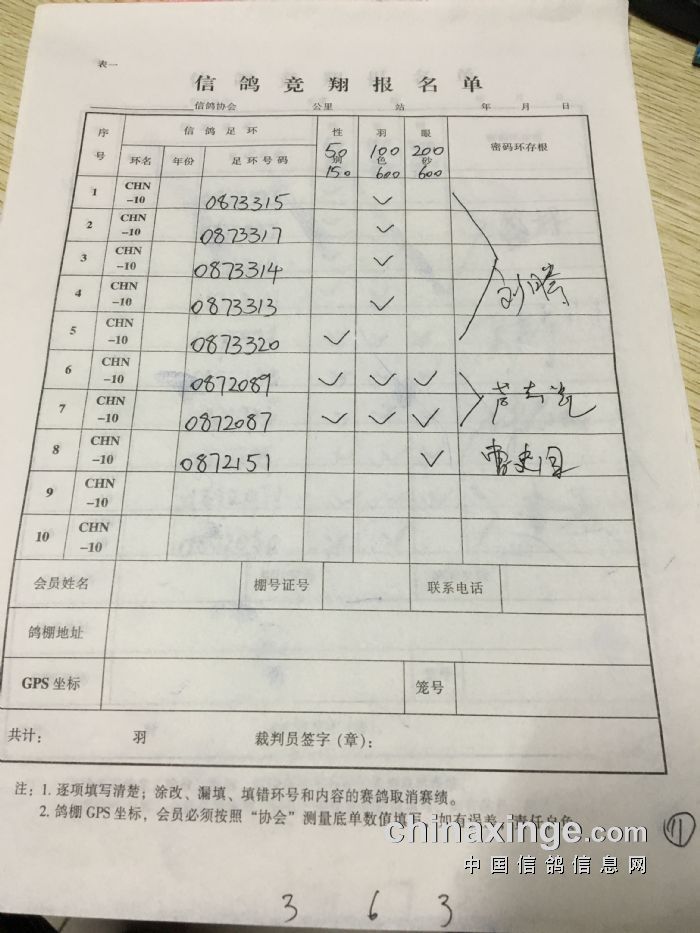 表一
信鸽竞翔报名单
信鸽协会 公里 站 年 月 日
序号 信鸽足环 性别 羽色 眼砂 密码环存根
环名 年份 足环号码
50 100 200
150 600 600
1 CHN-10 0873315 ✓
2 CHN-10 0873317 ✓
3 CHN-10 0873314 ✓
4 CHN-10 0873313 ✓
5 CHN-10 0873320 ✓
6 CHN-10 0872089 ✓ ✓ ✓
7 CHN-10 0872087 ✓ ✓ ✓
8 CHN-10 0872151 ✓
9 CHN-10
10 CHN-10
会员姓名 棚号证号 联系电话
鸽棚地址
GPS 坐标 笼号
共计： 羽 裁判员签字（章）：
注：1. 逐项填写清楚；涂改、漏填、填错环号和内容的赛鸽取消赛绩。
2. 鸽棚 GPS 坐标，会员必须按照“协会”测量底单数值填写，如有误差，责任自负
11
chinaxinge.com
中国信鸽信息网
3 6 3